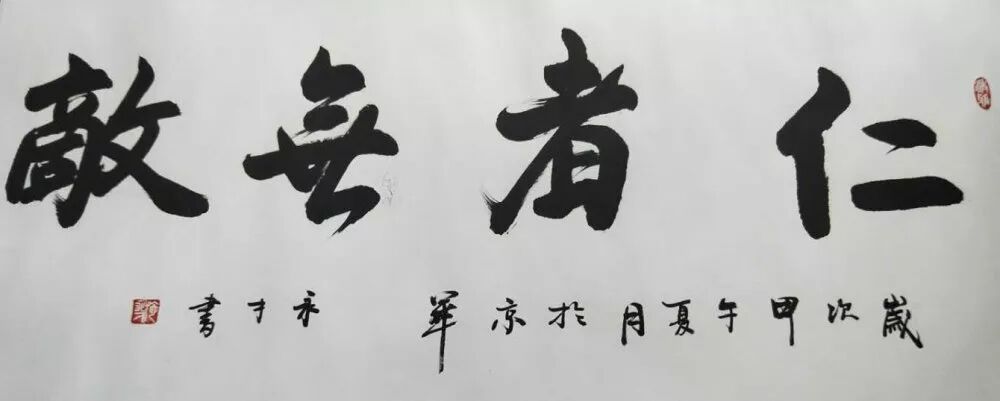 仁者無敵
歲次甲午夏月於京華 永才書